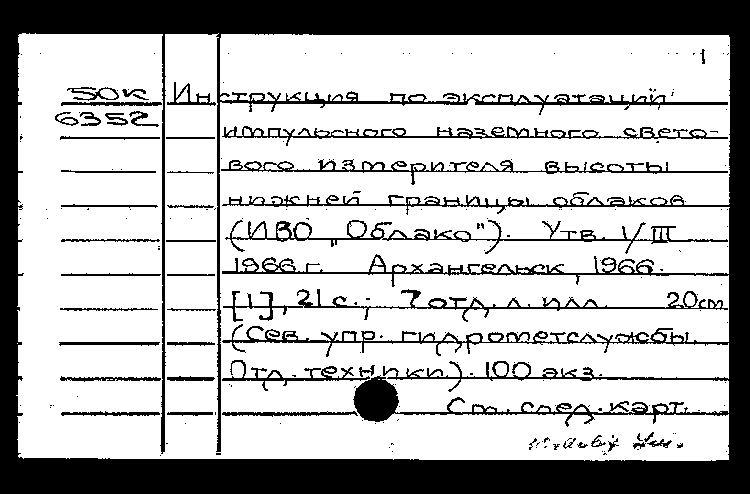 1
50К Инструкция по эксплуатаций
6352
импульсного наземного свето-
вого измерителя высоты
нижней границы облаков
(ИВО „Облако"). Утв. 1/III
1966 г. Архангельск, 1966.
[1], 21 с.; 7 отд. л. илл. 20 см
(Сев. упр. гидрометслужбы.
Отд. техники). 100 экз.
См. след. карт.